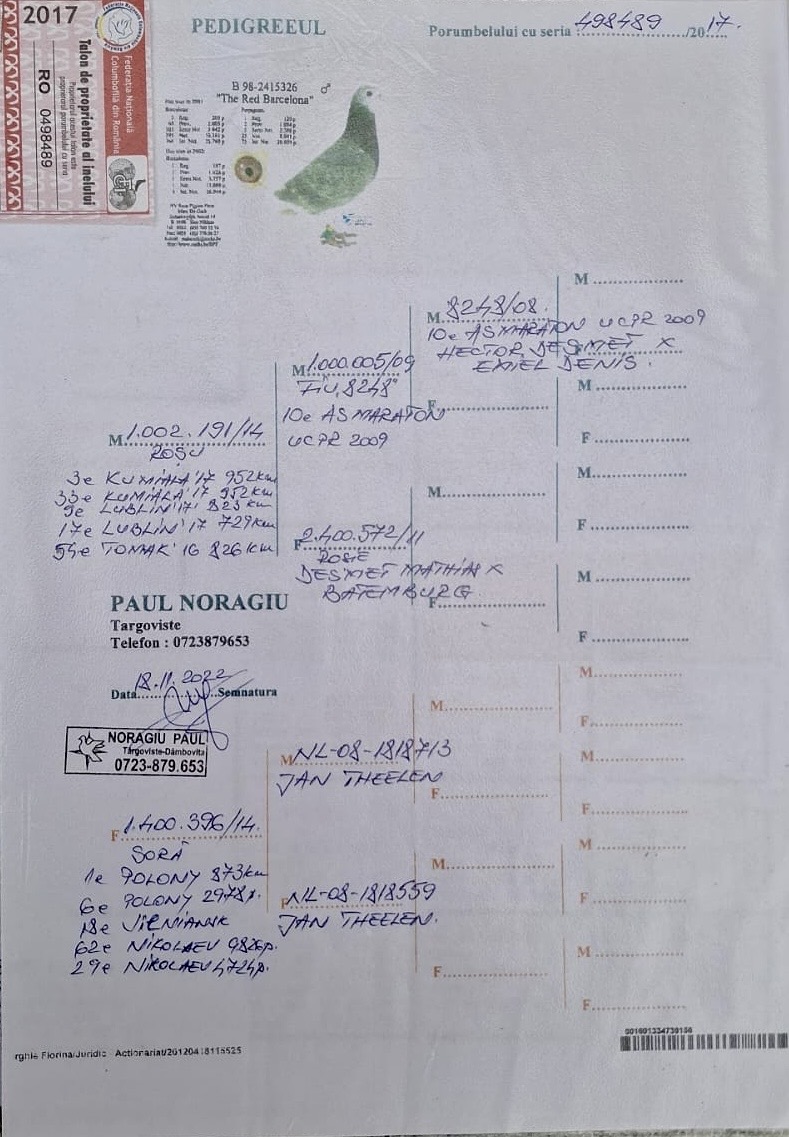 2017
Talon de proprietate al inelului
RO 0498489
Federația Națională
Columbofilă din România
PEDIGREEUL
Porumbelului cu seria 498489/2017.
B 98-2415326 ♂
"The Red Barcelona"
M 8248/08.
10e AS MARATON UCPR 2009
HECTOR DESMET X
EMIEL DENIS.
M 1.000.005/09
FIU "8248"
10e AS MARATON
UCPR 2009
M 1.002.191/14
ROȘU
3e KUMIALA'17 952km
33e KUMIALA'17 952km
9e LUBLIN'17 823km
17e LUBLIN'17 729km
54e TOMAK'16 826km
F 2.400.572/11
ROSIE
DESMET MATHIAS X
BATEMBURG
PAUL NORAGIU
Targoviste
Telefon : 0723879653
Data 18.11.2022 Semnatura
NORAGIU PAUL
Târgoviste-Dâmbovita
0723-879.653
M NL-08-1818713
JAN THEELEN
F 1.400.396/14.
SORĂ
1e POLONY 873km
6e POLONY 2978p.
18e
62e NIKOLAEV 982p.
29e NIKOLAEV 4724p.
F NL-08-1818559
JAN THEELEN.
M
M
F
M
F
M
F
M
F
M
F
M
F
M
F
M
F
M
F
M
F
M
F
rghie Florina/Juridic - Actionariat/20120418115525
001601334738156